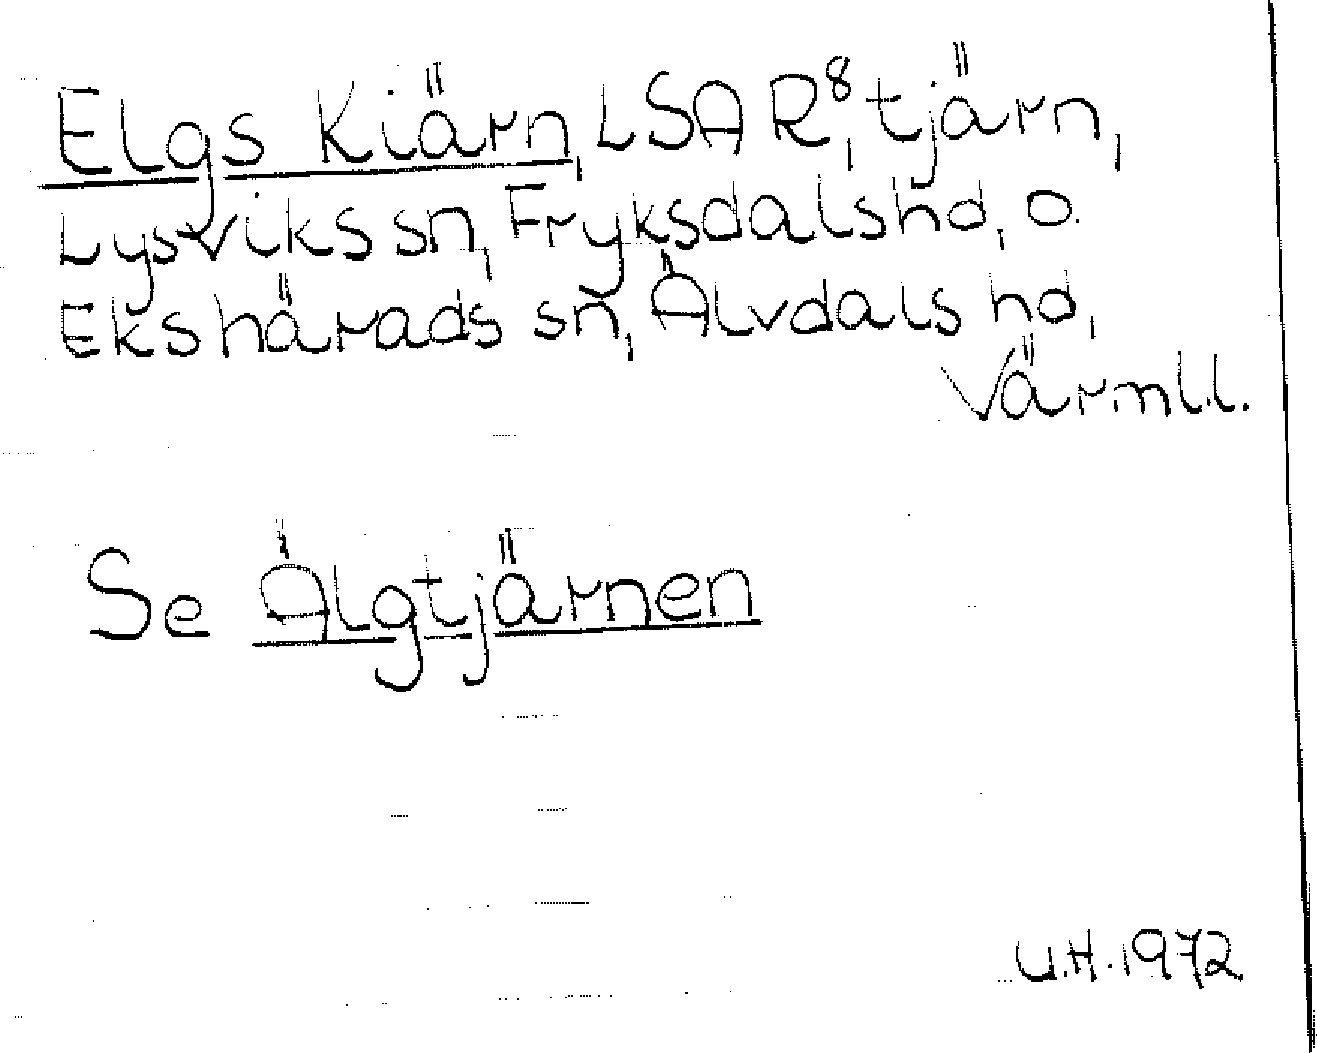 Elgs Kiärn, LSA R⁸, tjärn,
Lysviks sn, Fryksdals hd, o.
Ekshärads sn, Älvdals hd,
Värml.l.
Se Älgtjärnen
U.H. 1972